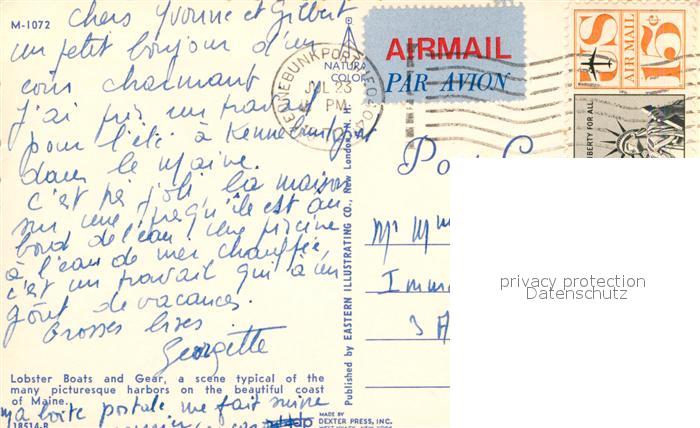 M-1072
chers Yvonne et Gilbert
un petit bonjour d'un
coin charmant
j'ai pris un travail
pour l'été à Kennebunkport
dans le Maine.
c'est très joli la maison
sur une presqu'île est au
bord de l'eau une piscine
à l'eau de mer chauffée
c'est un travail qui a un
goût de vacances.
Grosses bises
Georgette
Lobster Boats and Gear, a scene typical of the
many picturesque harbors on the beautiful coast
of Maine.
ma boite postale me fait suivre
18514-B
NATURAL
COLOR
KENNEBUNKPORT, ME 04046
JUL 23
PM
AIRMAIL
PAR AVION
US
AIR MAIL
15c
LIBERTY FOR ALL
Published by EASTERN ILLUSTRATING CO., New London, N. H.
Mr Mme
Imm
3 A
privacy protection
Datenschutz
dp
MADE BY
DEXTER PRESS, INC.
WEST NYACK, NEW YORK